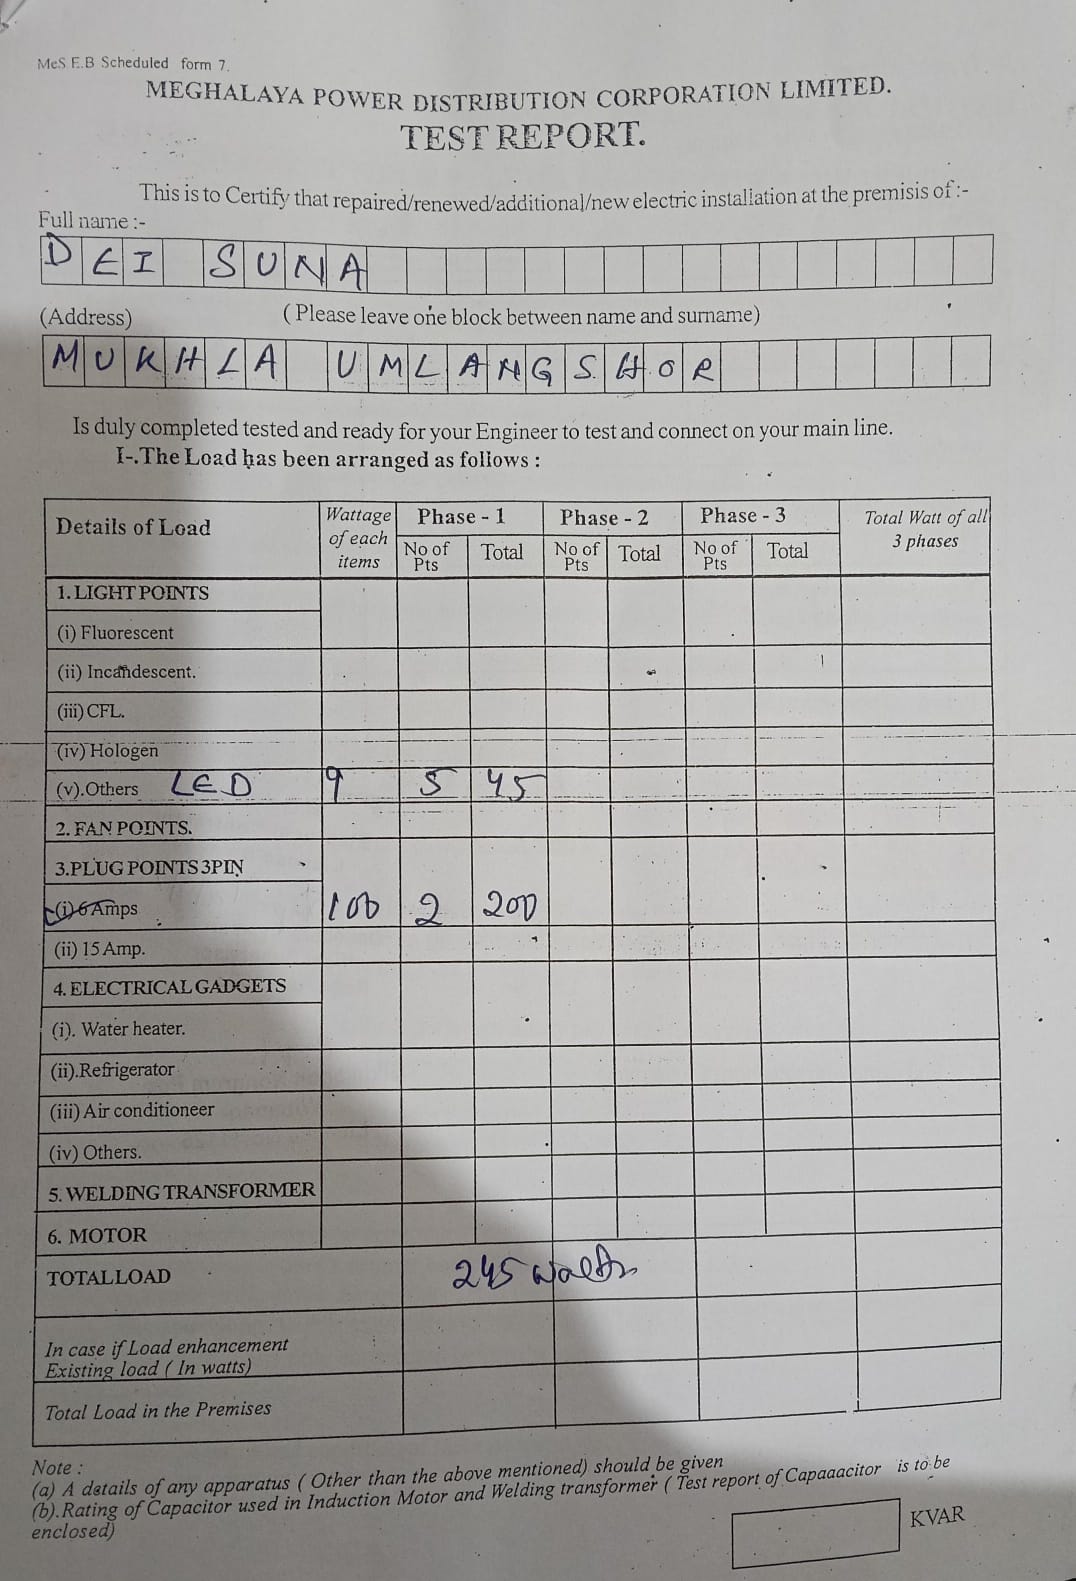 MeS E.B Scheduled form 7.
MEGHALAYA POWER DISTRIBUTION CORPORATION LIMITED.
TEST REPORT.
This is to Certify that repaired/renewed/additional/new electric installation at the premisis of :-
Full name :-
DEI SUNA
(Address) ( Please leave one block between name and surname)
MUKHLA UMLANGSHOR
Is duly completed tested and ready for your Engineer to test and connect on your main line.
I-.The Load has been arranged as follows :
Details of Load Wattage of each items Phase - 1 Phase - 2 Phase - 3 Total Watt of all 3 phases
No of Pts Total No of Pts Total No of Pts Total
1. LIGHT POINTS
(i) Fluorescent
(ii) Incandescent.
(iii) CFL.
(iv) Hologen
(v).Others LED 9 5 45
2. FAN POINTS.
3.PLUG POINTS 3PIN
(i) 6 Amps 100 2 200
(ii) 15 Amp.
4. ELECTRICAL GADGETS
(i). Water heater.
(ii).Refrigerator
(iii) Air conditioneer
(iv) Others.
5. WELDING TRANSFORMER
6. MOTOR
TOTAL LOAD 245 watts
In case if Load enhancement
Existing load ( In watts)
Total Load in the Premises
Note :
(a) A details of any apparatus ( Other than the above mentioned) should be given
(b).Rating of Capacitor used in Induction Motor and Welding transformer ( Test report of Capaaacitor is to be
enclosed)
KVAR